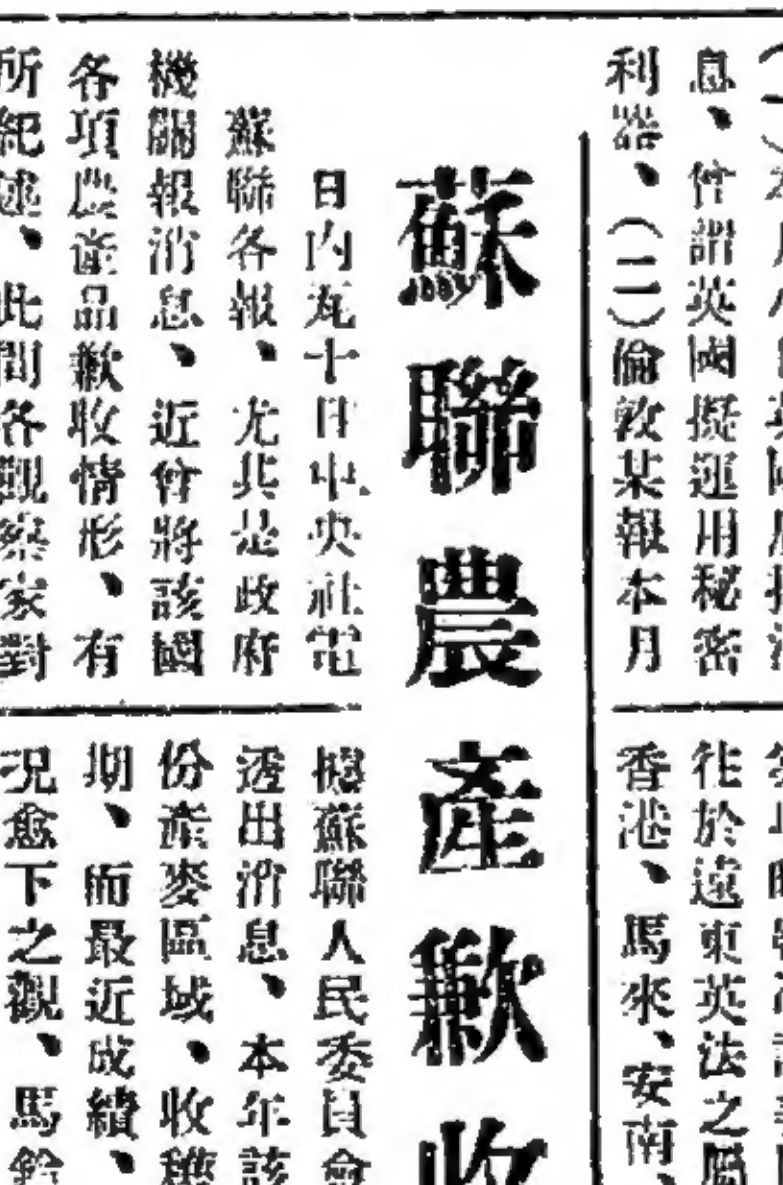 息、曾謂英國擬運用秘密
利器、(二)倫敦某報本月
往於遠東英法之屬
香港、馬來、安南、
蘇聯農產歉收
日內瓦十日中央社電
蘇聯各報、尤其是政府
機關報消息、近曾將該國
各項農產品歉收情形、有
所紀述、此間各觀察家對
據蘇聯人民委員會
透出消息、本年該
份產麥區域、收穫
期、而最近成績、
況愈下之觀、馬鈴